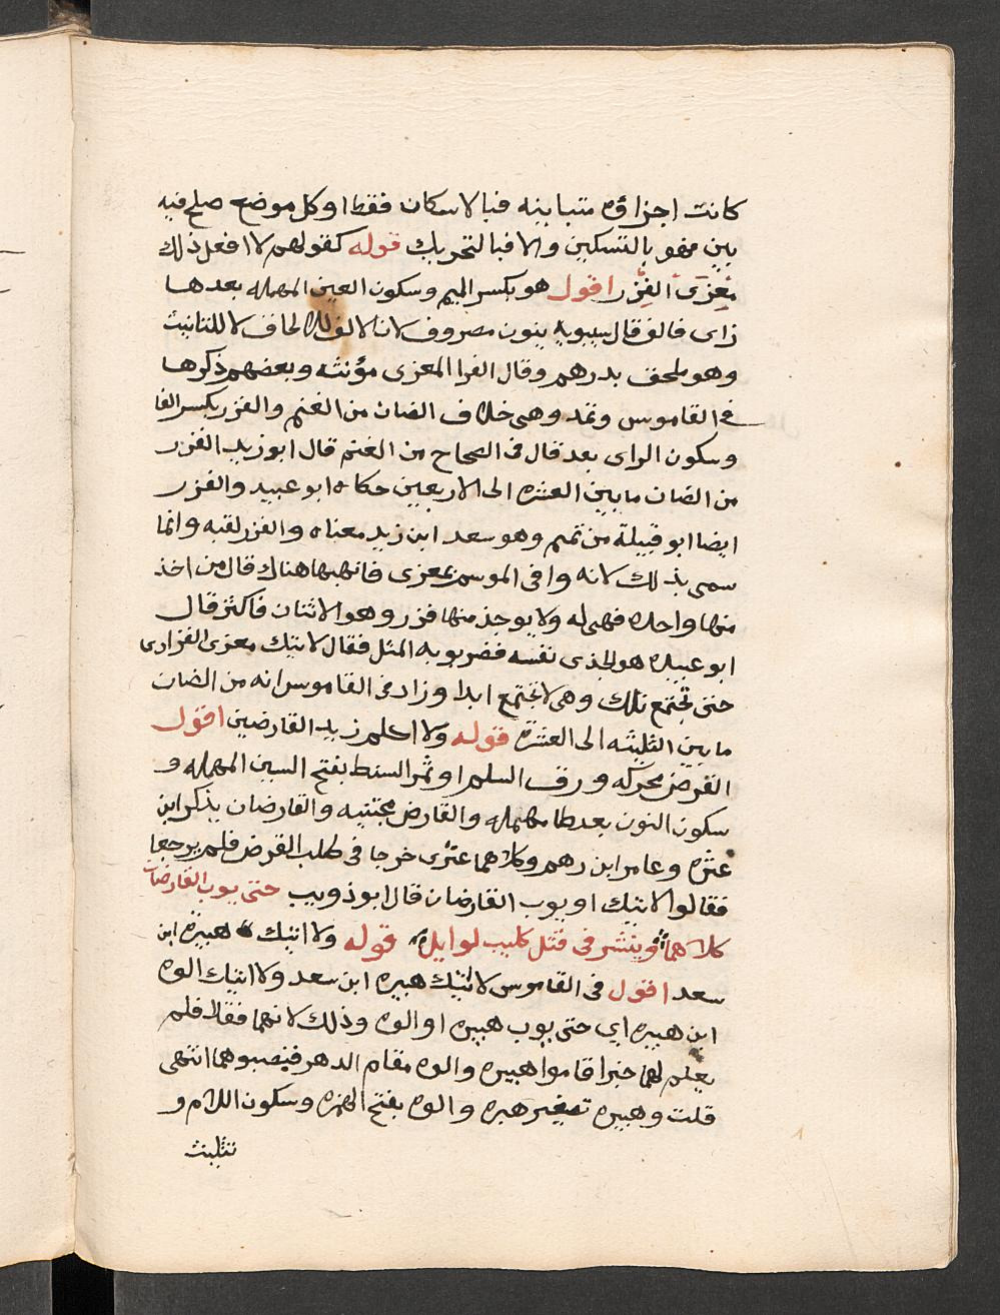 كانت اجزاؤه متباينه فبالاسكان فقط او كل موضع صلح فيه
بين فهو بالتسكين والا فبالتحريك قوله كقولهم لا افعل ذلك
مِعْزَى الفِزْر اقول هو بكسر الميم وسكون العين المهمله بعدها
زاى فالف قال سيبويه ينون مصروف لان الالف للالحاق لا للتانيث
وهو ملحق بدرهم وقال الفرا المعزى مؤنثه وبعضهم ذكرها
فى القاموس وتمد وهى خلاف الضان من الغنم والفزر بكسر الفا
وسكون الزاى بعد قال فى الصحاح من الغنم قال ابو زيد الفزر
من الضان ما بين العشره الى الاربعين حكاه ابو عبيد والفزر
ايضا ابو قبيلة من تميم وهو سعد ابن زيد معناه والفزر لقبه وانما
سمى بذلك لانه وافى الموسم بمعزى فانهبها هناك قال من اخذ
منها واحده فهى له ولا يوجذ منها فزر وهو الاثنان فاكثر قال
ابو عبيده هو الجذى نفسه فضربو به المثل فقال لا نتيك معزى الفزر اى
حتى تجتمع تلك وهى لا تجتمع ابدا وزاد فى القاموس انه من الضان
ما بين الثلثه الى العشرة قوله ولا اكلم زيد القارضين اقول
القرض محركه ورق السلم او ثمر السنط بفتح السين المهمله و
سكون النون بعد طا مهمله والقارض مجتنيه والقارضان يذكر ابن
عثره وعامر ابن رهم وكلاهما عنزى خرجا فى طلب القرض فلم يرجعا
فقالوا لا نتيك او يوب القارضان قال ابو ذويب حتى يوب القارضان
كلاهما وينشر فى قتل كليب لوايل قوله ولا اتيك هبيرة ابن
سعد اقول فى القاموس لا نتيك هبيره ابن سعد ولا اتيك الوه
ابن هبيره اى حتى يوب هبيره او الوه وذلك لانهما فقدا فلم
يعلم لهما خبر اقاموا هبيره والوه مقام الدهر فنصبوهما انتهى
قلت وهبيره تصغير هبره والوه بفتح الهمزه وسكون اللام و
تثليث